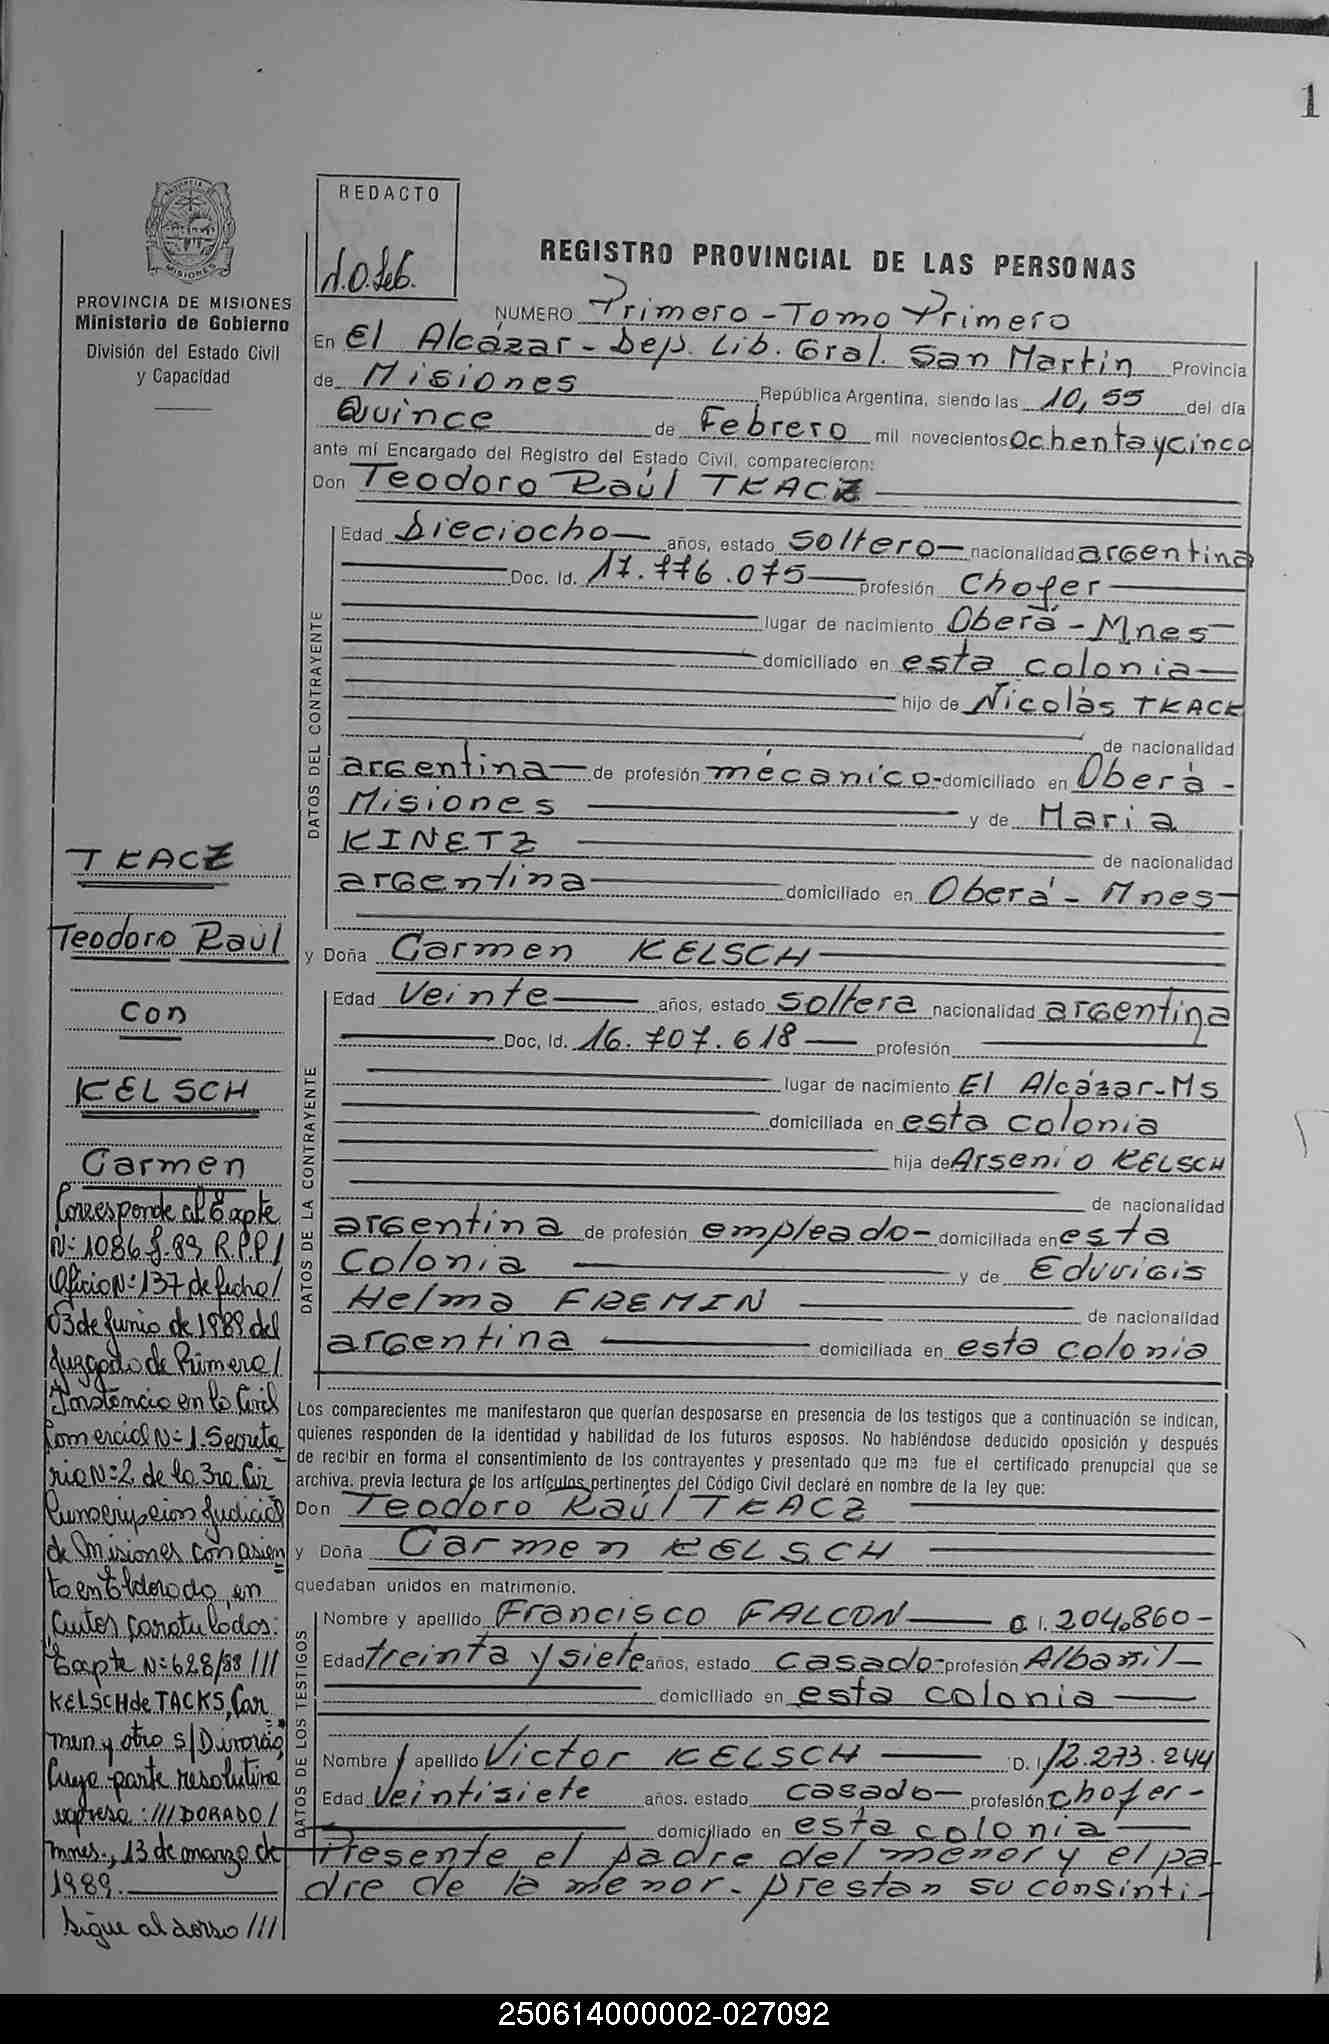 1
PROVINCIA DE MISIONES
Ministerio de Gobierno
División del Estado Civil
y Capacidad
REDACTO
REGISTRO PROVINCIAL DE LAS PERSONAS
NUMERO Primero - Tomo Primero
En El Alcázar - Dep. Lib. Gral. San Martín Provincia
de Misiones República Argentina, siendo las 10,55 del día
Quince de Febrero mil novecientos Ochenta y Cinco
ante mí Encargado del Registro del Estado Civil, comparecieron:
Don Teodoro Raúl TKACZ
DATOS DEL CONTRAYENTE
Edad Dieciocho años, estado soltero nacionalidad argentina
Doc. Id. 17.776.075 profesión Chofer
lugar de nacimiento Oberá - Mnes
domiciliado en esta colonia
hijo de Nicolás TKACK
de nacionalidad
argentina de profesión mécanico - domiciliado en Oberá -
Misiones y de Maria
KINETZ de nacionalidad
argentina domiciliado en Oberá - Mnes
y Doña Carmen KELSCH
DATOS DE LA CONTRAYENTE
Edad Veinte años, estado soltera nacionalidad argentina
Doc, Id. 16.707.618 profesión
lugar de nacimiento El Alcázar - Ms
domiciliada en esta colonia
hija de Arsenio KELSCH
de nacionalidad
argentina de profesión empleado - domiciliada en esta
Colonia y de Eduvigis
Helma FREMIN de nacionalidad
argentina domiciliada en esta colonia
Los comparecientes me manifestaron que querían desposarse en presencia de los testigos que a continuación se indican,
quienes responden de la identidad y habilidad de los futuros esposos. No habiéndose deducido oposición y después
de recibir en forma el consentimiento de los contrayentes y presentado que me fue el certificado prenupcial que se
archiva, previa lectura de los artículos pertinentes del Código Civil declaré en nombre de la ley que:
Don Teodoro Raúl TKACZ
y Doña Carmen KELSCH
quedaban unidos en matrimonio.
DATOS DE LOS TESTIGOS
Nombre y apellido Francisco FALCON 204.860 -
Edad treinta y siete años, estado casado - profesión Albañil
domiciliado en esta colonia
Nombre y apellido Victor KELSCH D. I. 12.273.244
Edad Veintisiete años. estado casado - profesión chofer -
domiciliado en esta colonia
Presente el padre del menor y el pa
dre de la menor - prestan su consinti -
TKACZ
Teodoro Raúl
Con
KELSCH
Carmen
Corresponde al Expte
Nº 1086 J. 89 R.P.P/
Oficio Nº 137 de fecha/
03 de Junio de 1989 del
Juzgado de Primera/
Instancia en lo Civil
Comercial Nº 1. Secreta
ria Nº 2 de la 3ra Cir
cunscripcion Judicial
de Misiones con asien
to en Eldorado, en
autos caratulados:
Expte Nº 628/88 ///
KELSCH de TACKS, Car
men y otro s/Divorcio,
Cuya parte resolutiva
expresa: ///DORADO/
mnes., 13 de marzo de
1989.
Sigue al dorso ///
250614000002-027092